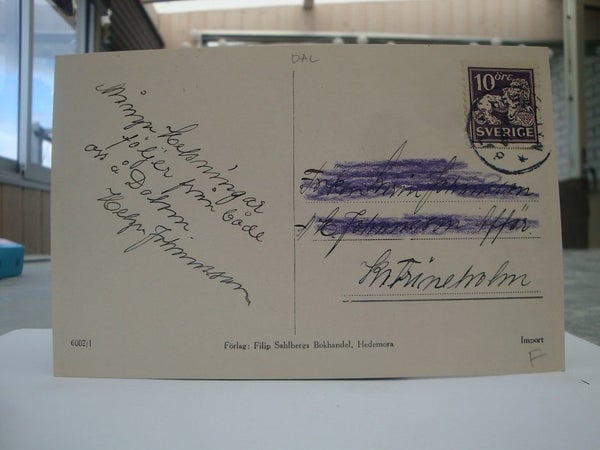 DAL
10 ÖRE
SVERIGE
Många Helsningar
följer från både
oss å Dalarn
Helga Johansson
Fröken Johansson
Johansson Affär
Katrineholm
6002/1
Förlag: Filip Sahlbergs Bokhandel, Hedemora
Import
F